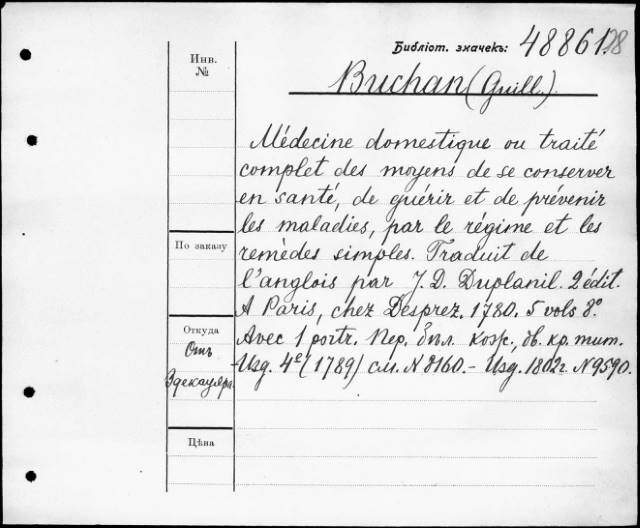 Библіот. значекъ: 48861.
Buchan (Guill.).
Инв.
№
Médecine domestique ou traité
complet des moyens de se conserver
en santé, de guérir et de prévenir
les maladies, par le régime et les
remèdes simples. Traduit de
l'anglois par J. D. Duplanil. 2 édit.
A Paris, chez Desprez, 1780. 5 vols 8º.
Avec 1 portr. Пер. был. кож., об. кр. тит.
Изд. 4e (1789) см. N 8160. — Изд. 1802г. N 9590.
По заказу
Откуда
Отъ
Цѣна